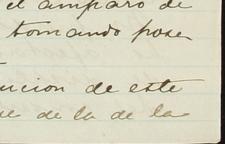 el amparo de
tomando pose
ucion de este
de la de la